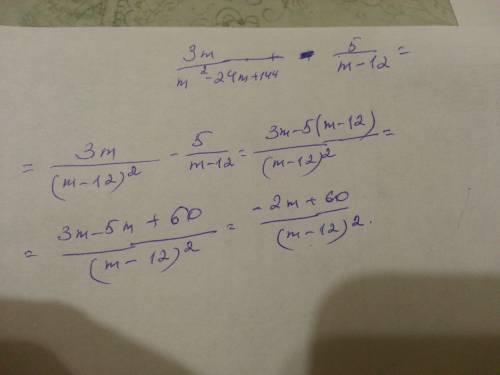 3m / (m² - 24m + 144) - 5 / (m - 12) =
= 3m / (m - 12)² - 5 / (m - 12) = (3m - 5(m - 12)) / (m - 12)² =
= (3m - 5m + 60) / (m - 12)² = (-2m + 60) / (m - 12)².